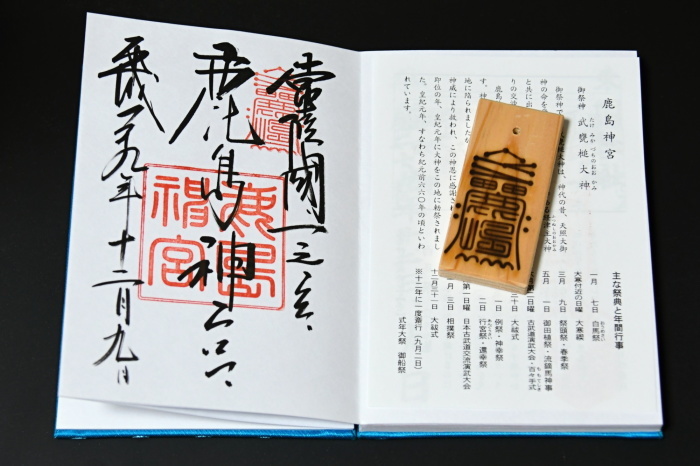 常陸國一之宮
鹿島神宮
平成二九年十二月九日
鹿島神宮
鹿島神宮
御祭神 武甕槌大神
たけ みか づちの おお かみ
御祭神で
大神は、神代の昔、天照大御
神の命を
と共に出
りの交渉
鹿島
す。神
地に陥られましたが
神威により救われ、この神恩に感謝され
即位の年、皇紀元年に大神をこの地に勅祭されまし
た。皇紀元年、すなわち紀元前六六〇年の頃といわ
れています。
主な祭典と年間行事
一月 七日 白馬祭
大寒付近の日曜 大寒禊
三月 九日 祭頭祭・春季祭
五月 一日 御田植祭・流鏑馬神事
日曜 古武道演武大会・百々手式
三十日 大祓式
一日 例祭・神幸祭
二日 行宮祭・還幸祭
第一日曜 日本古武道交流演武大会
月 三日 相撲祭
十二月三十一日 大祓式
※十二年に一度斎行(九月二日)
式年大祭 御船祭